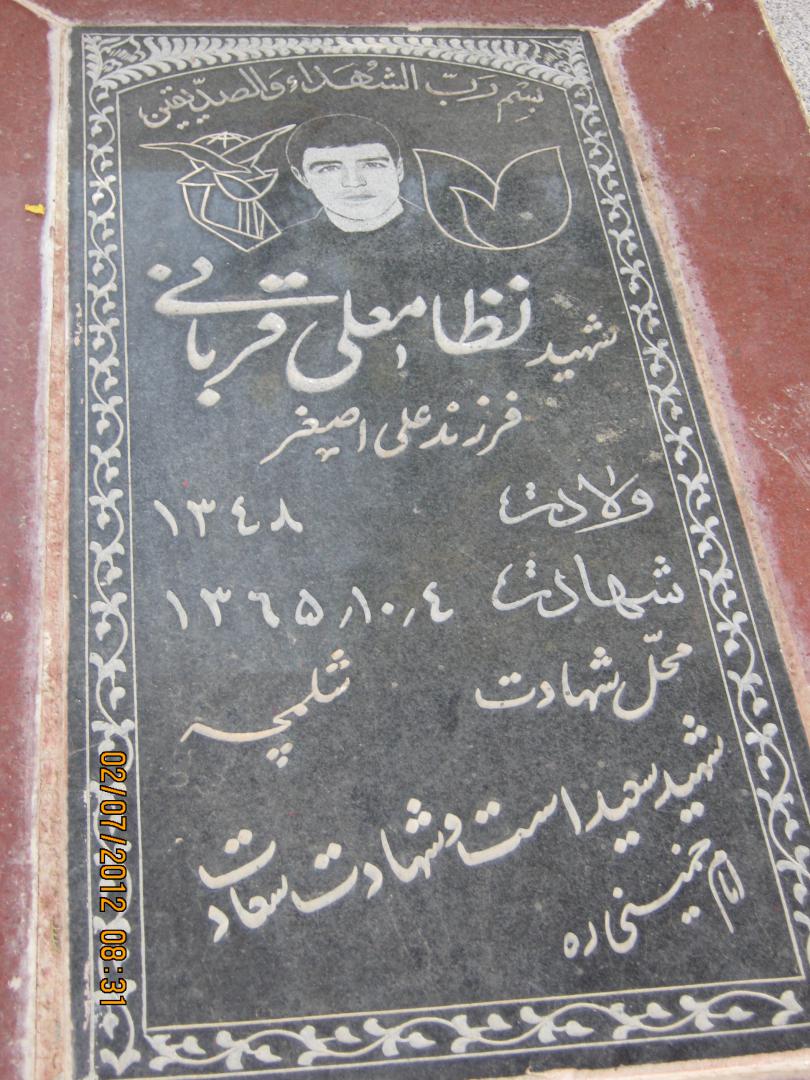 بسم ربّ الشهداء والصدّیقین
شهید نظامعلی قربانی
فرزند علی اصغر
ولادت ۱۳۴۸
شهادت ۱۳۶۵/۱۰/۴
محلّ شهادت شلمچه
شهید سعید است و شهادت سعادت
امام خمینی ره
02/07/2012 08:31